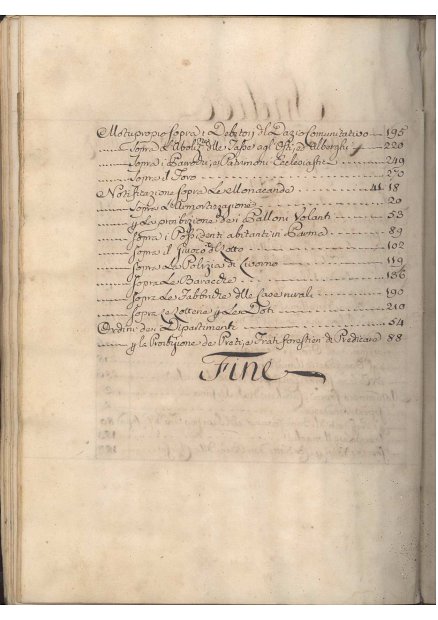 Motuproprio sopra i Debitori del Dazio Comunitativo 195
Sopra l'Aboliz.ne delle Tasse agl'Osti, ed Alberghi 220
Sopra i Patrimoni Ecclesias.ci 249
Sopra il Foro 270
Notificazione sopra Le Monacande 41 18
Sopra L'Amortizazione 20
p La proibizione dei Palloni Volanti 53
Sopra i Possidenti abitanti in Parma 89
Sopra il Giuoco del Lotto 102
Sopra La Polizia di Livorno 119
Sopra Le Baracche 186
Sopra Le Fabbriche delle Case rurali 190
Sopra p Le Doti 210
Ordini dei Dipartimenti 54
p la Proibizione de Preti, e Frati forestieri di Predicare 88
Fine